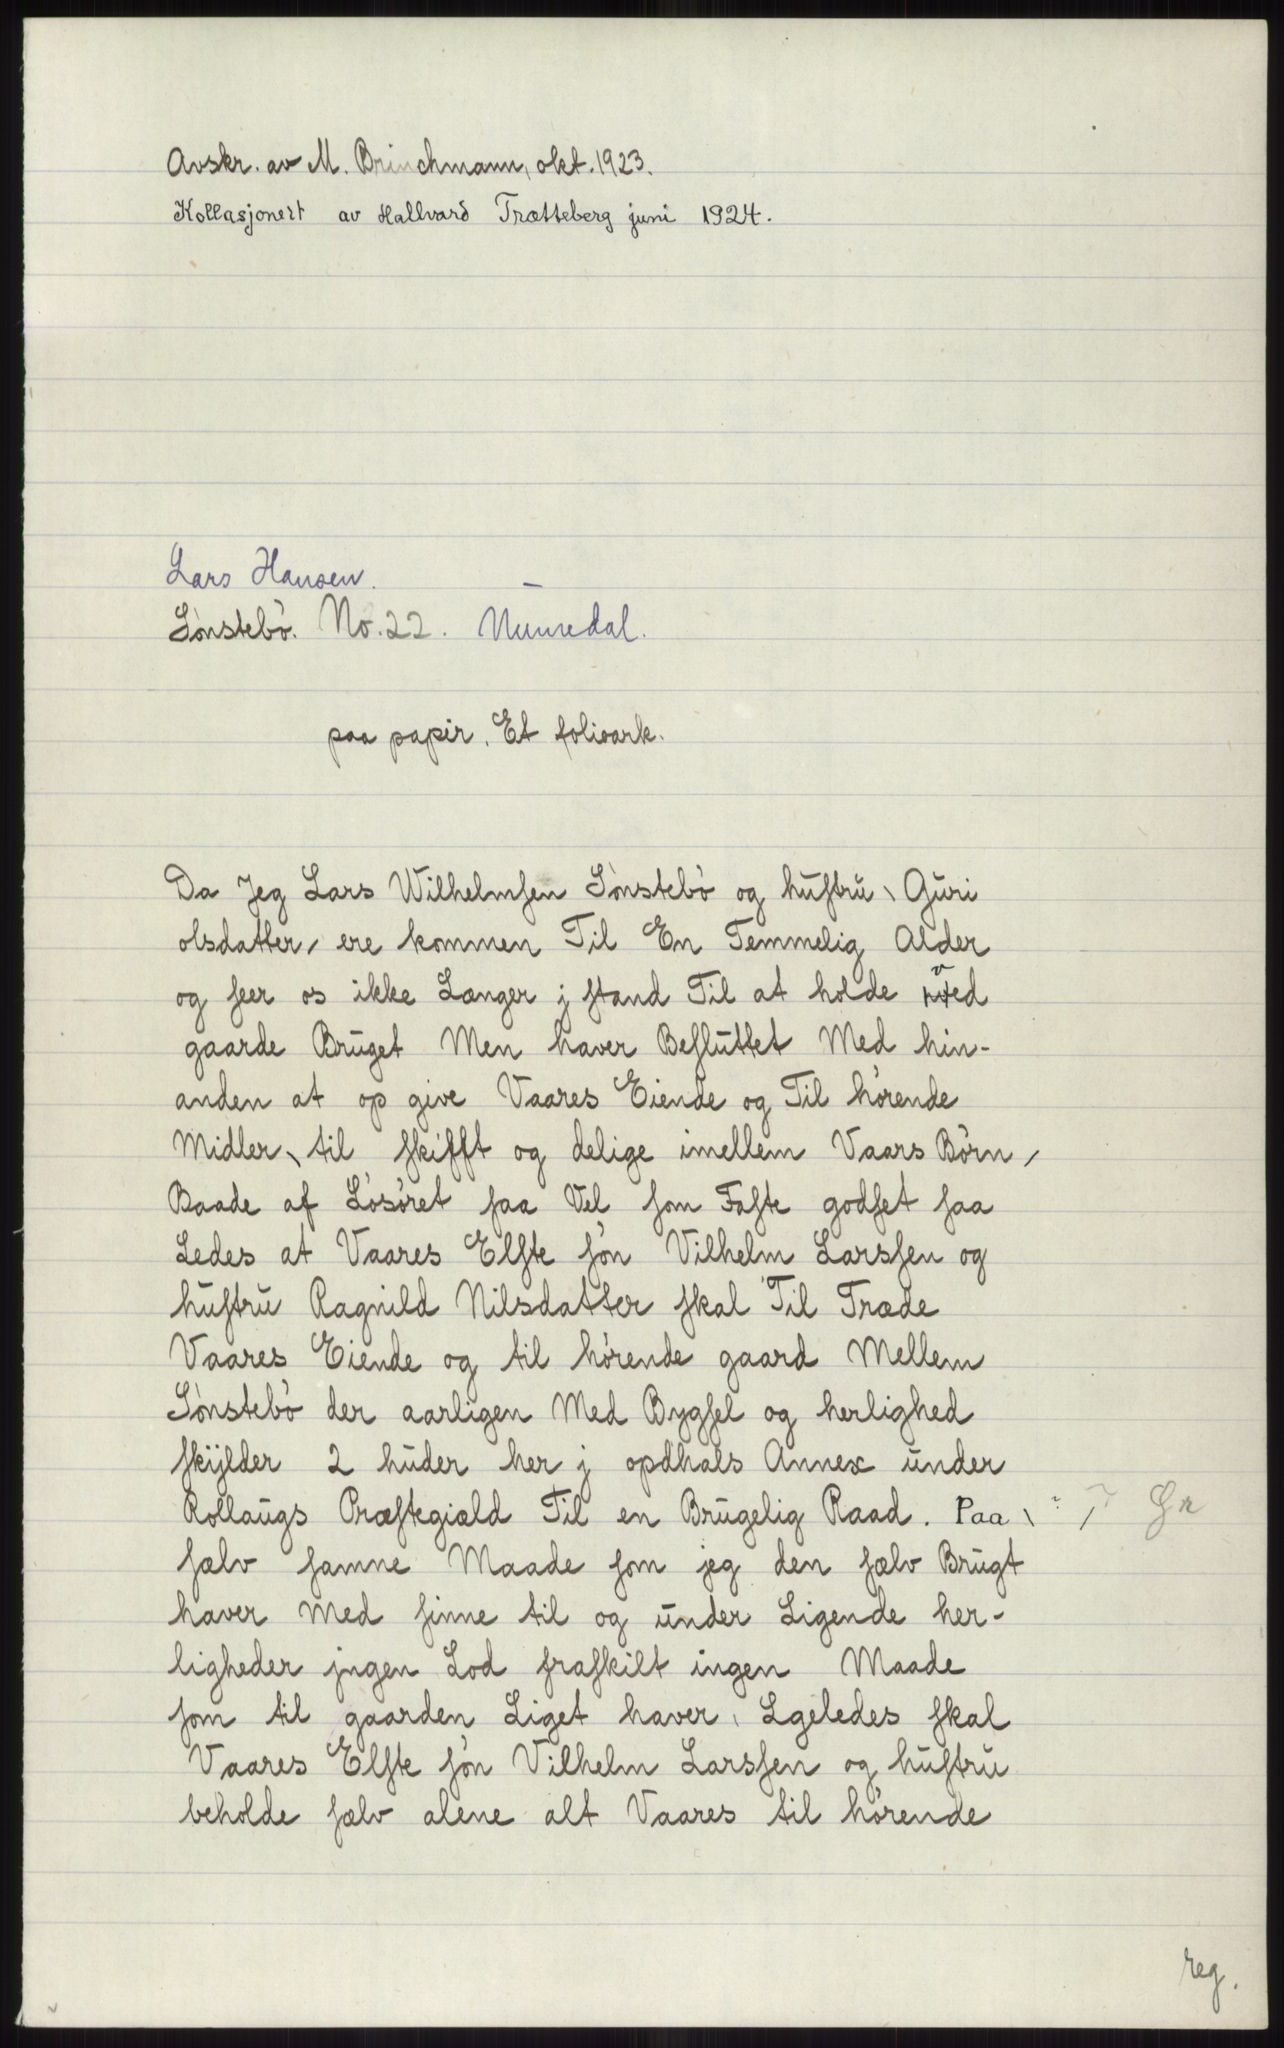 Avskr. av M. Brinchmann, okt. 1923.
Kollasjonert av Hallvard Trætteberg juni 1924.
Lars Hansen.
Sønstebø. No. 22. Numedal.
paa papir. Et folioark.
Da Jeg Lars Wilhelmsen Sønstebø og hustru \ Guri
olsdatter / ere kommen Til En Temmelig Alder
og seer os ikke Længer j stand Til at holde ved
gaarde Bruget Men haver Besluttet Med hin-
anden at op give Vaares Eiende og Til hørende
Midler \ til skifft og delige imellem Vaars Børn /
Baade af Løsøret saa Vel som Faste godset saa
Ledes at Vaares Elste søn Vilhelm Larssen og
hustru Ragnild Nilsdatter skal Til Træde
Vaares Eiende og til hørende gaard Mellem
Sønstebø der aarligen Med Bygsel og herlighed
skylder 2 huder her j opdhals Annex under
Rollaugs Præstegiæld Til en Brugelig Raad. Paa \
sælv samne Maade som jeg den sælv Brugt
haver Med sinne til og under Ligende her-
ligheder jngen Lod fraskilt ingen Maade
som til gaarden Liget haver, Lgeledes skal
Vaares Elste søn Vilhelm Larssen og hustru
beholde sælv alene alt Vaares til hørende
reg.